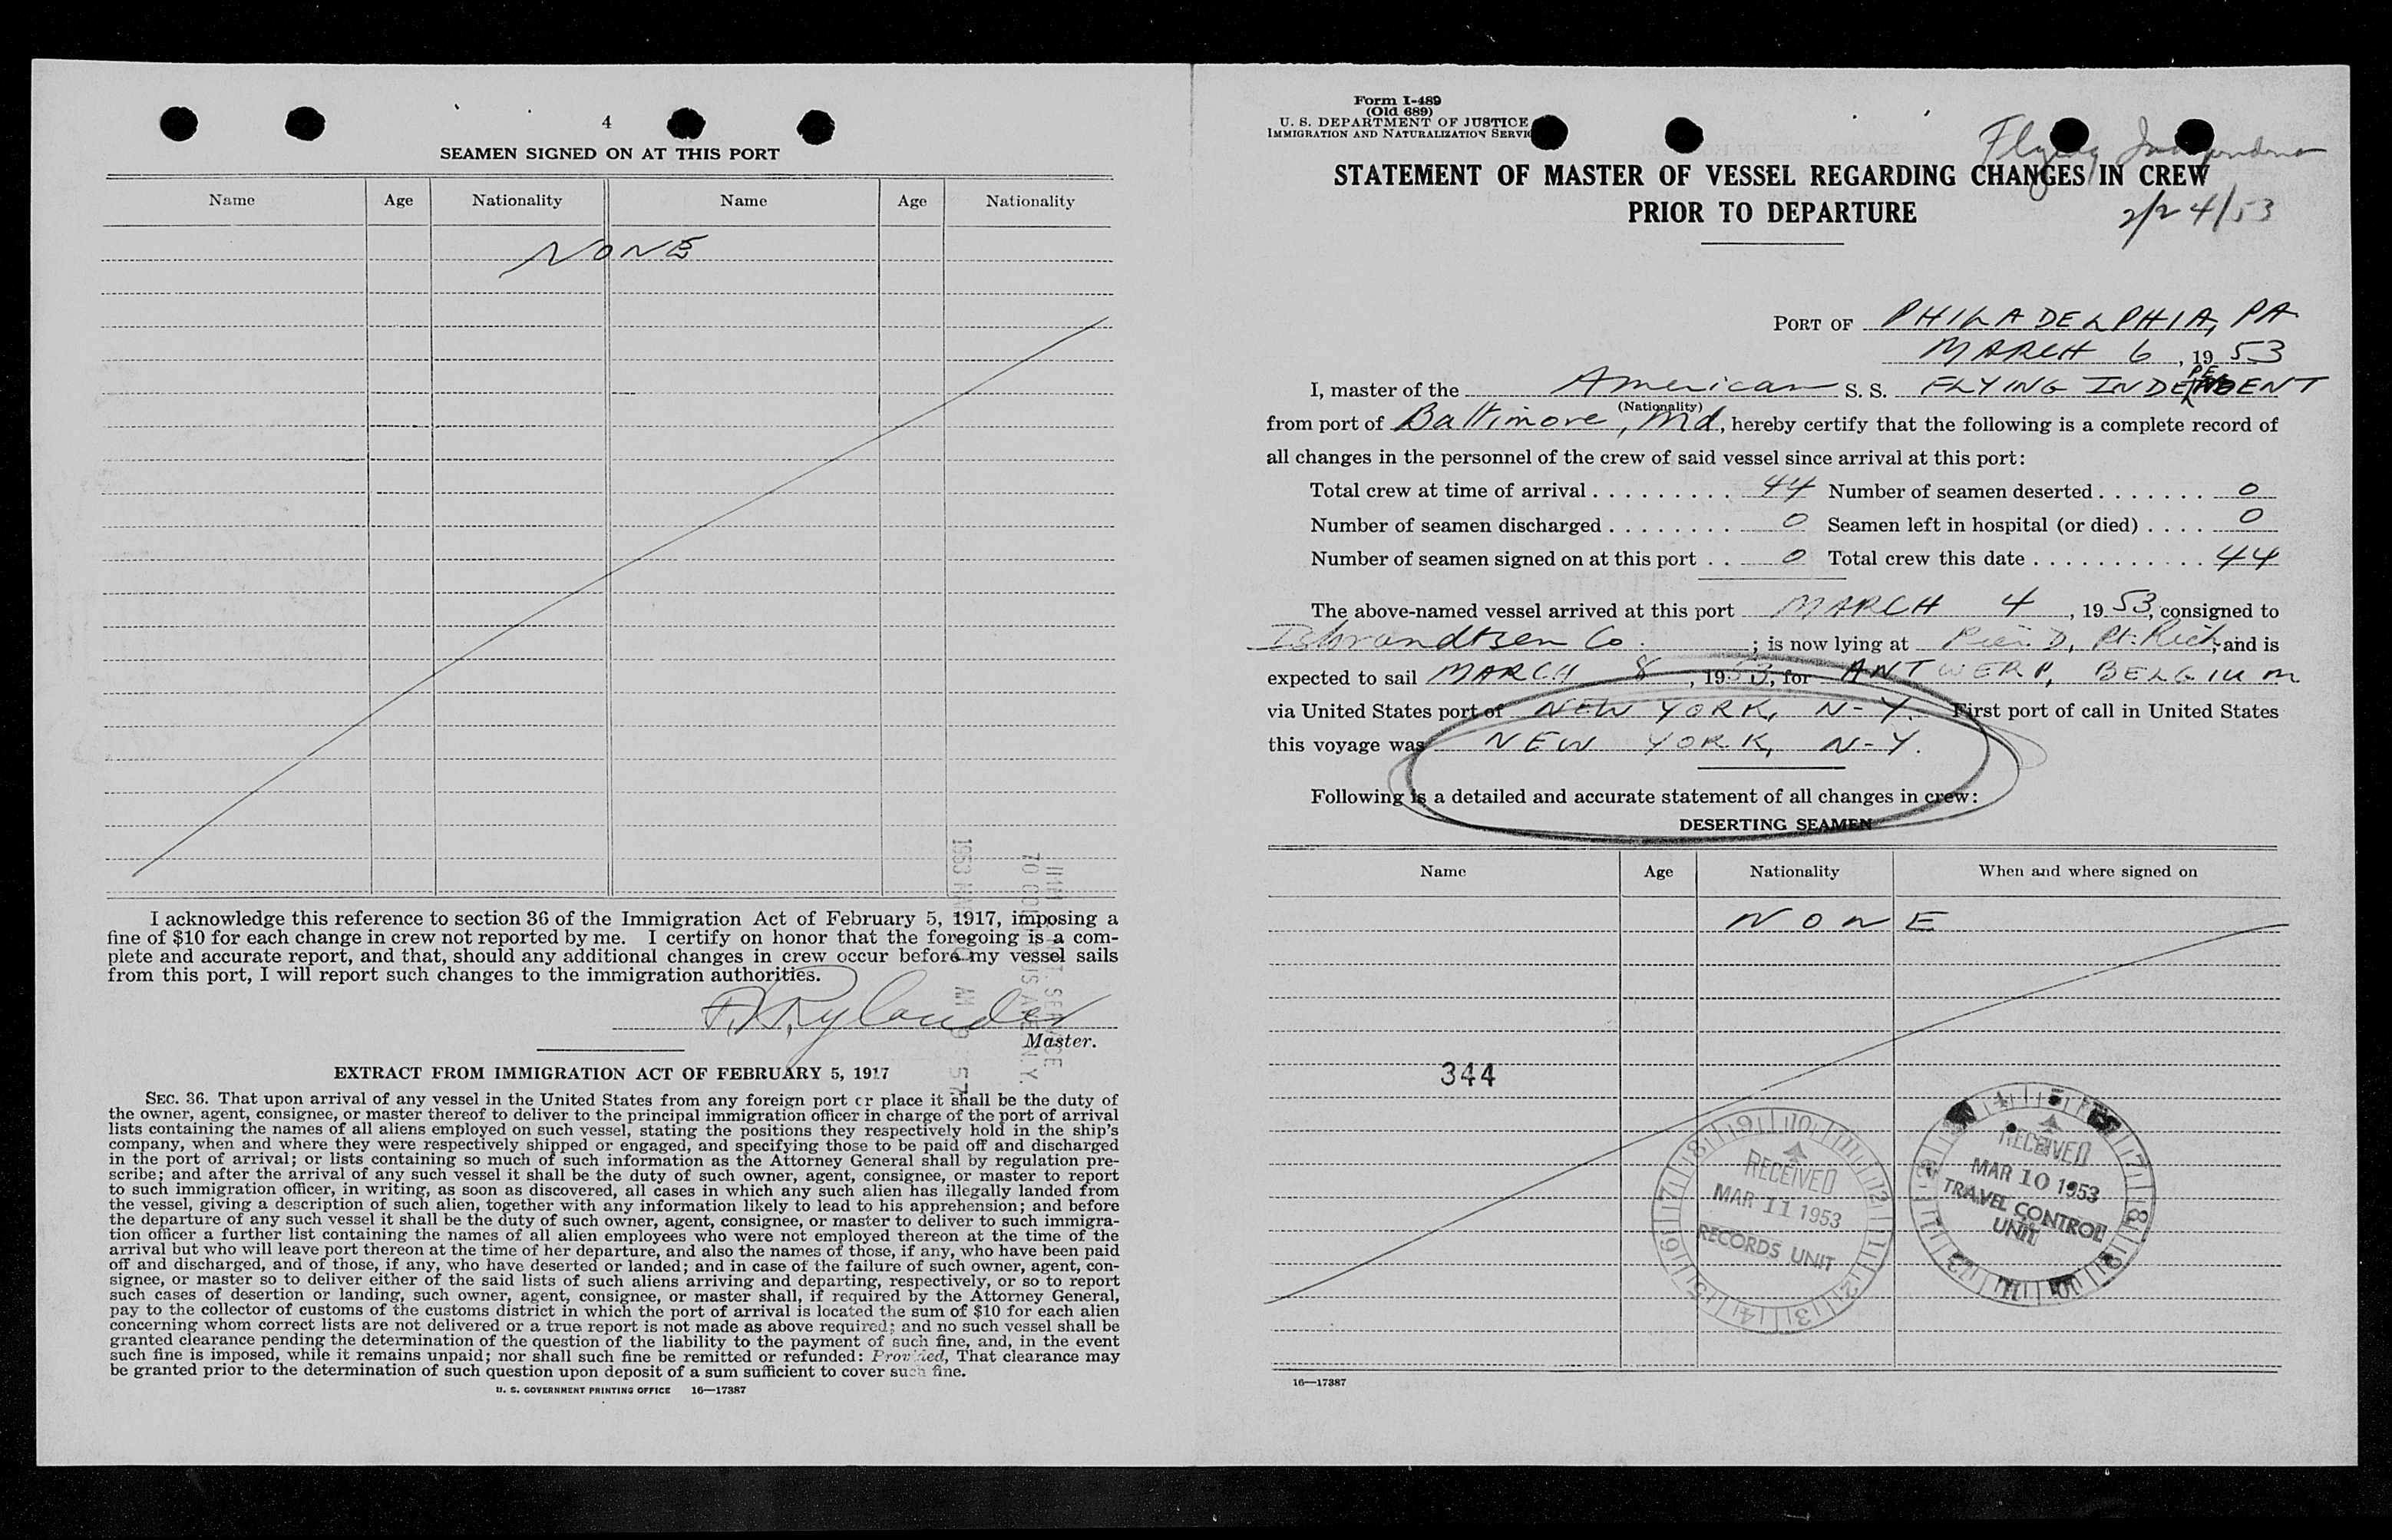 4
SEAMEN SIGNED ON AT THIS PORT
Name Age Nationality Name Age Nationality
NONE
I acknowledge this reference to section 36 of the Immigration Act of February 5, 1917, imposing a
fine of $10 for each change in crew not reported by me. I certify on honor that the foregoing is a com-
plete and accurate report, and that, should any additional changes in crew occur before my vessel sails
from this port, I will report such changes to the immigration authorities.
Rylander
Master.
EXTRACT FROM IMMIGRATION ACT OF FEBRUARY 5, 1917
SEC. 36. That upon arrival of any vessel in the United States from any foreign port or place it shall be the duty of
the owner, agent, consignee, or master thereof to deliver to the principal immigration officer in charge of the port of arrival
lists containing the names of all aliens employed on such vessel, stating the positions they respectively hold in the ship's
company, when and where they were respectively shipped or engaged, and specifying those to be paid off and discharged
in the port of arrival; or lists containing so much of such information as the Attorney General shall by regulation pre-
scribe; and after the arrival of any such vessel it shall be the duty of such owner, agent, consignee, or master to report
to such immigration officer, in writing, as soon as discovered, all cases in which any such alien has illegally landed from
the vessel, giving a description of such alien, together with any information likely to lead to his apprehension; and before
the departure of any such vessel it shall be the duty of such owner, agent, consignee, or master to deliver to such immigra-
tion officer a further list containing the names of all alien employees who were not employed thereon at the time of the
arrival but who will leave port thereon at the time of her departure, and also the names of those, if any, who have been paid
off and discharged, and of those, if any, who have deserted or landed; and in case of the failure of such owner, agent, con-
signee, or master so to deliver either of the said lists of such aliens arriving and departing, respectively, or so to report
such cases of desertion or landing, such owner, agent, consignee, or master shall, if required by the Attorney General,
pay to the collector of customs of the customs district in which the port of arrival is located the sum of $10 for each alien
concerning whom correct lists are not delivered or a true report is not made as above required; and no such vessel shall be
granted clearance pending the determination of the question of the liability to the payment of such fine, and, in the event
such fine is imposed, while it remains unpaid; nor shall such fine be remitted or refunded: Provided, That clearance may
be granted prior to the determination of such question upon deposit of a sum sufficient to cover such fine.
U. S. GOVERNMENT PRINTING OFFICE 16—17387
Form I-489
(Old 689)
U. S. DEPARTMENT OF JUSTICE
IMMIGRATION AND NATURALIZATION SERVICE
Flying
STATEMENT OF MASTER OF VESSEL REGARDING CHANGES IN CREW
PRIOR TO DEPARTURE
2/24/53
PORT OF PHILADELPHIA, PA
MARCH 6, 1953
I, master of the American S. S. FLYING INDEPENDENT
(Nationality)
from port of Baltimore, Md, hereby certify that the following is a complete record of
all changes in the personnel of the crew of said vessel since arrival at this port:
Total crew at time of arrival 44 Number of seamen deserted 0
Number of seamen discharged 0 Seamen left in hospital (or died) 0
Number of seamen signed on at this port 0 Total crew this date 44
The above-named vessel arrived at this port MARCH 4, 1953, consigned to
Isbrandtsen Co. ; is now lying at Pier D, Pt. Rich, and is
expected to sail MARCH 8, 1953, for ANTWERP, BELGIUM
via United States port of NEW YORK, N-Y. First port of call in United States
this voyage was NEW YORK, N-Y.
Following is a detailed and accurate statement of all changes in crew:
DESERTING SEAMEN
Name Age Nationality When and where signed on
NONE
344
RECEIVED
MAR 11 1953
RECORDS UNIT
RECEIVED
MAR 10 1953
TRAVEL CONTROL
UNIT
16—17387